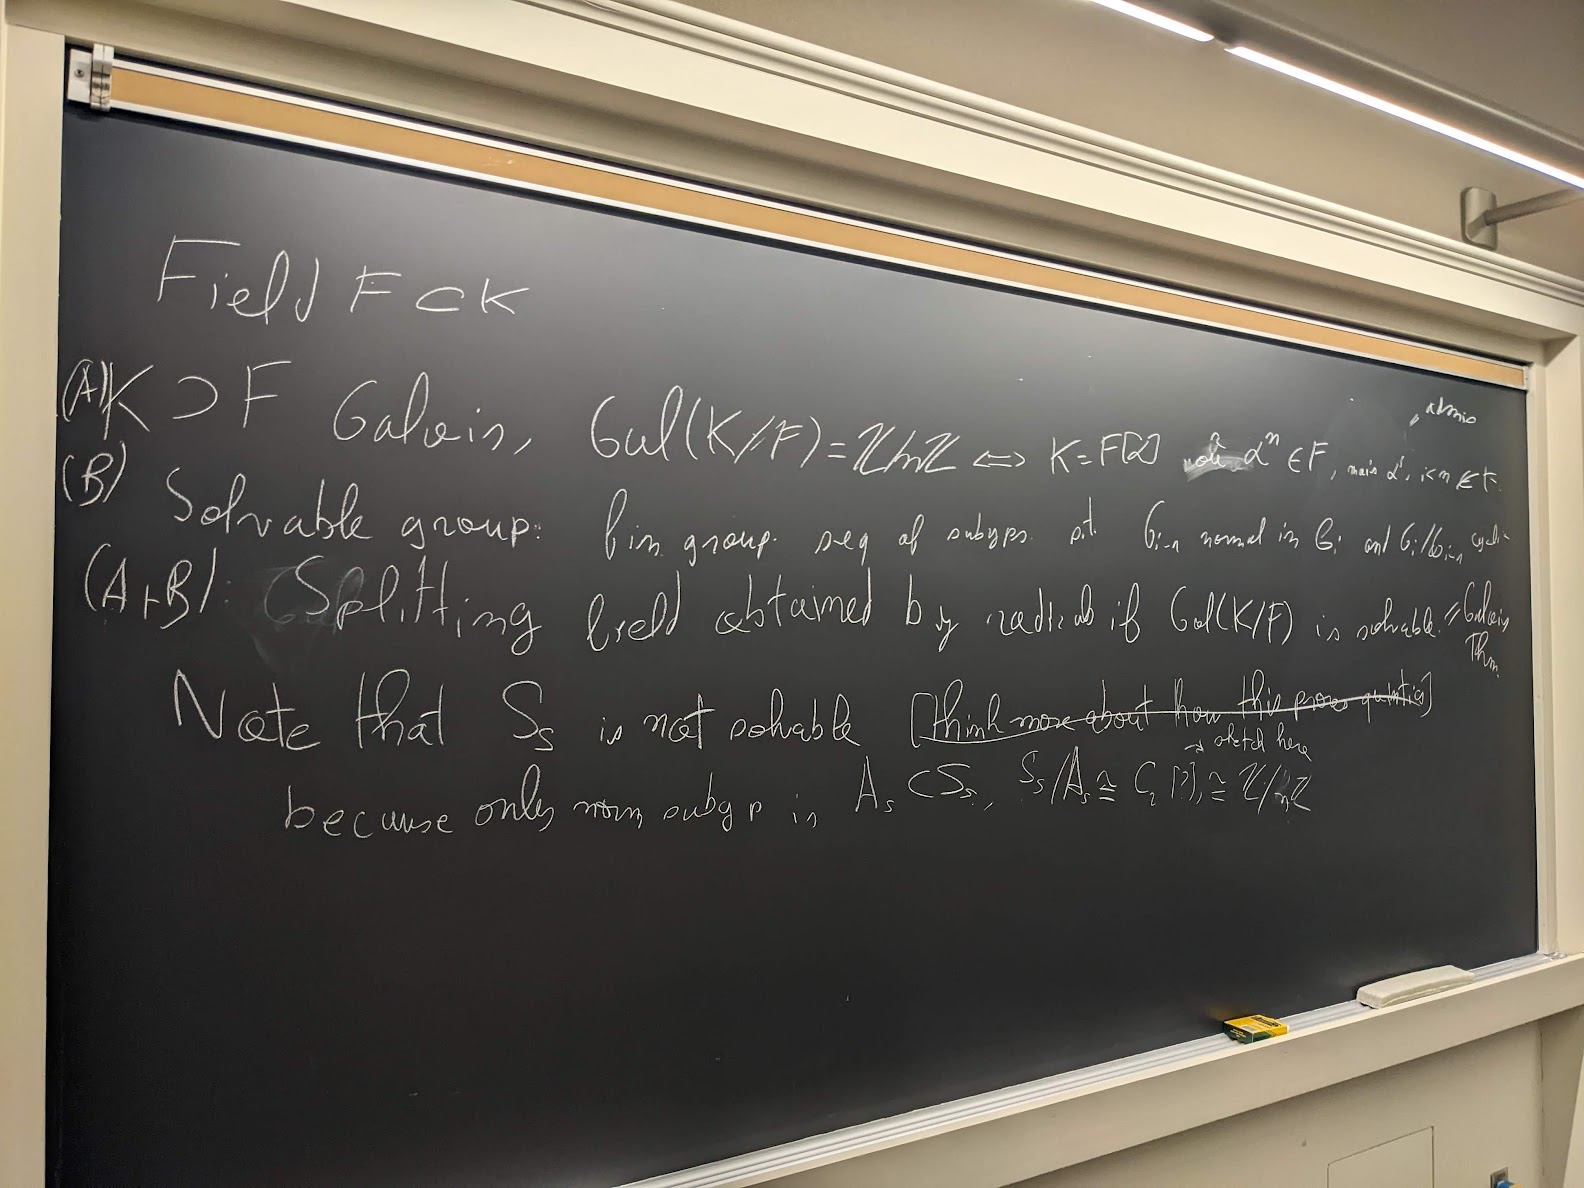 Field F ⊂ K
admis
(A) K ⊃ F Galois, Gal(K/F) = ℤ/nℤ ⟺ K = F[α] où αⁿ ∈ F, mais αⁱ, i<n ∉ F.
(B) Solvable group: fin group. seq of subgps. st. Gᵢ₋₁ normal in Gᵢ and Gᵢ/Gᵢ₋₁ cyclic
(A+B): Splitting field obtained by radicals if Gal(K/F) is solvable. = Galois Thm
Note that S₅ is not solvable [think more about how this proves quintics]
→ sketch here
because only norm subgp is A₅ ⊂ S₅, S₅/A₅ ≅ C₂ [?], ≅ ℤ/2ℤ